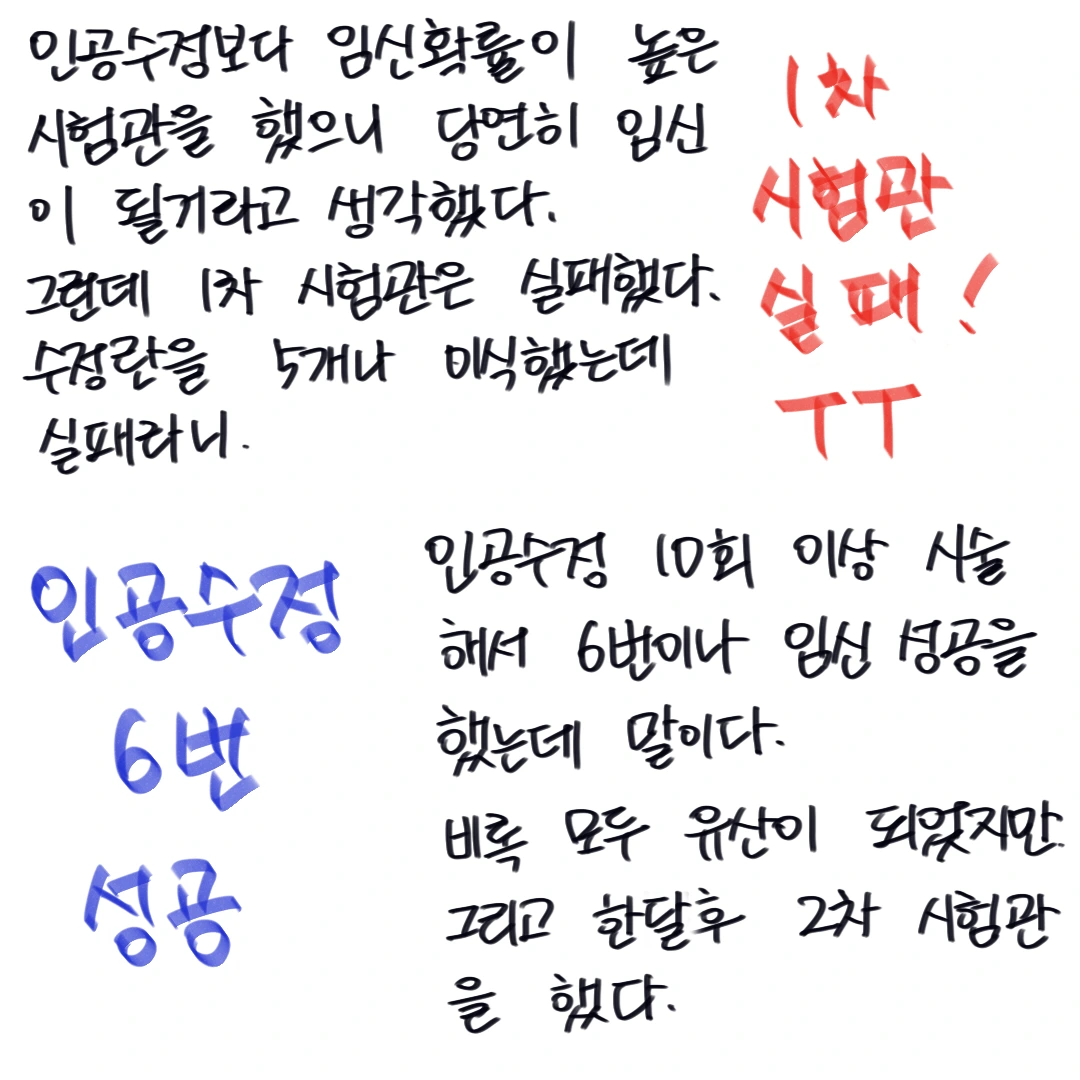 인공수정보다 임신확률이 높은
시험관을 했으니 당연히 임신
이 될거라고 생각했다.
그런데 1차 시험관은 실패했다.
수정란을 5개나 이식했는데
실패라니.
1차
시험관
실패!
ㅜㅜ
인공수정
6번
성공
인공수정 10회 이상 시술
해서 6번이나 임신 성공을
했는데 말이다.
비록 모두 유산이 되었지만.
그리고 한달후 2차 시험관
을 했다.